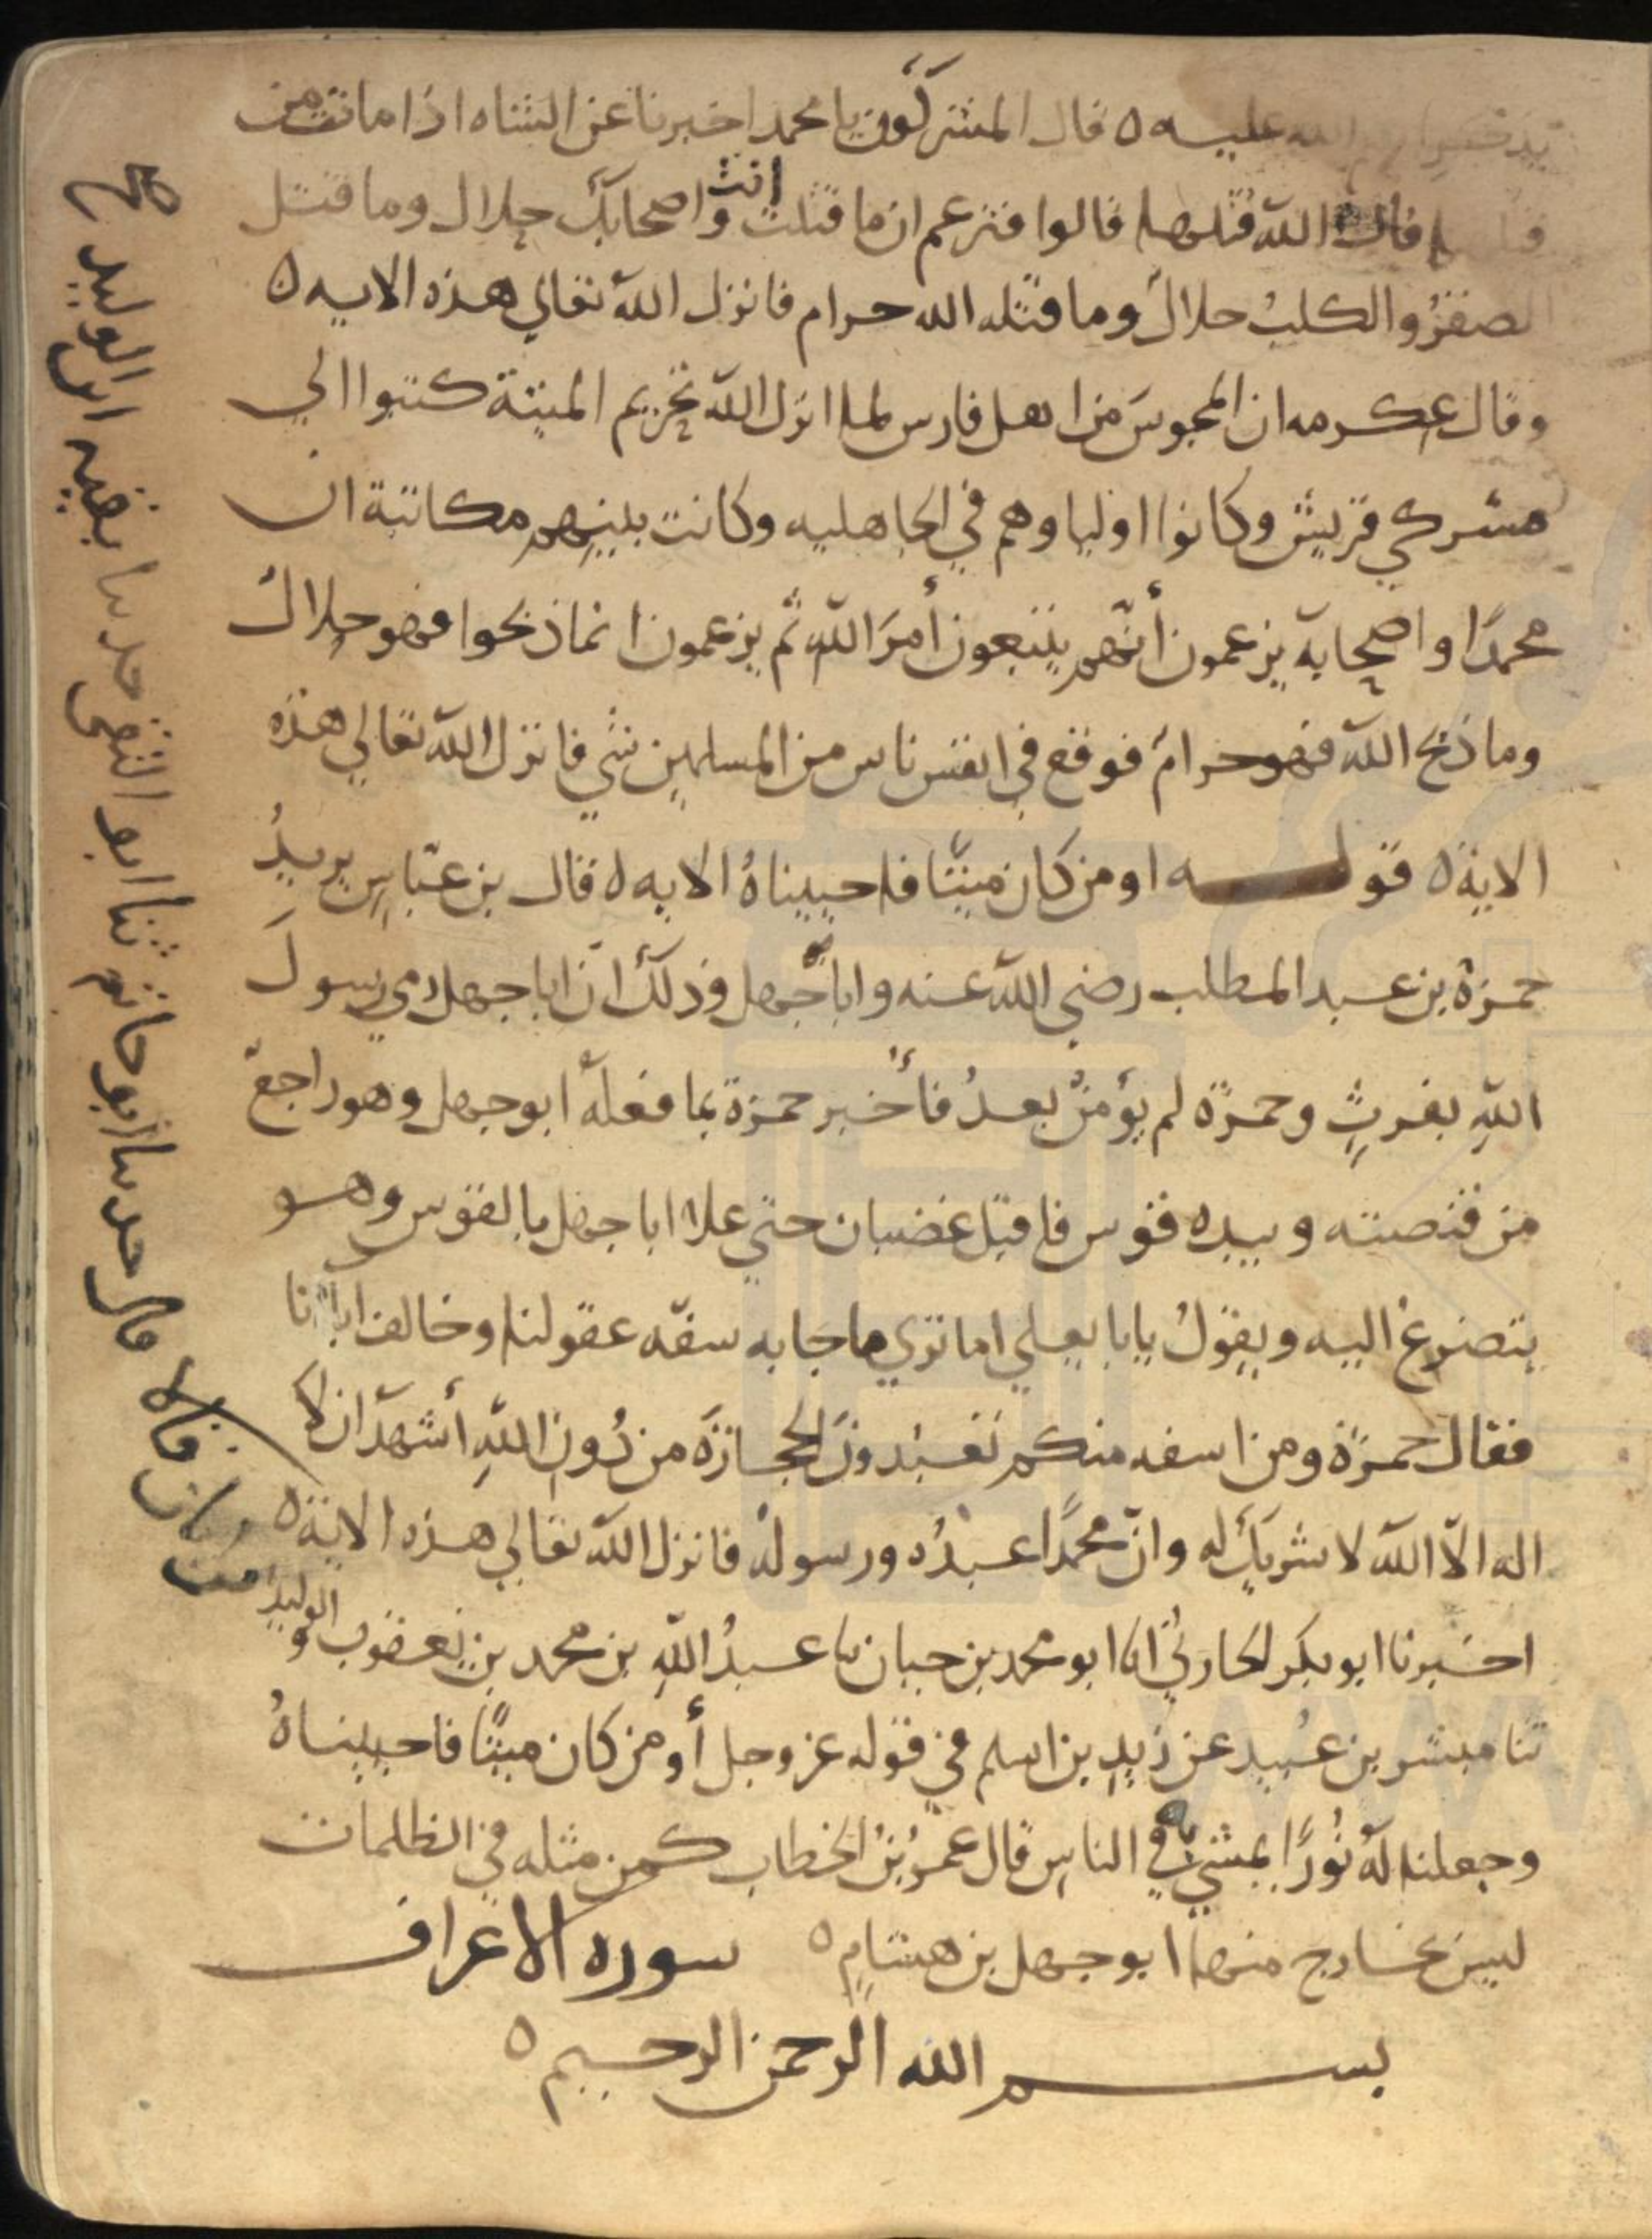 الله عليه ه قال المشركون يا محمد اخبرنا عن الشاه اذا ماتت من
قال الله قتلها قالوا فتزعم ان ما قتلت انت واصحابك حلال وما قتل
الصقرُ والكلبُ حلالٌ وما قتله الله حرام فانزل اللهُ تعالي هذه الايه ه
وقال عكرمه ان المجوسَ من اهل فارس لما انزل اللهُ تحريم الميتة كتبوا الي
مشركي قريش وكانوا اولياوهم في الجاهليه وكانت بينهم مكاتبة ان
محمدًا واصحابه يزعمون أنّهم يتبعون أمرَ الله ثم يزعمون ان ماذبحوا فهو حلالٌ
وما ذبح الله فهو حرامٌ فوقع في انفس ناس من المسلمين شي فانزل الله تعالي هذه
الاية ه قوله اومن كان ميتًا فاحييناهُ الايه ه قال بن عبّاسٍ يريدُ
حمزة بن عبد المطلب رضي الله عنه واباجهل وذلك انّ اباجهل رمي رسولَ
اللهِ بفرثٍ وحمزة لم يؤمنْ بعدُ فأُخبر حمزة بما فعلَه ابو جهل وهو راجعٌ
من قنصته وبيده قوس فاقبل غضبان حتي علا اباجهل بالقوس وهو
يتضرع اليه ويقولُ يابا يعلي اما تري ما جا به سفّه عقولنا وخالف اباانا
فقال حمزة ومن اسفه منكم تعبُدونَ الحجارةَ من دُونِ اللهِ أشهدُ ان لا
اله الاّ الله لا شريك له وانّ محمدًا عبدُه ورسولُه فانزل اللهُ تعالي هذه الاية ه
اخبرنا ابو بكر الحارثيُّ انا ابو محمد بن حيان نا عبدُ اللهِ بن محمد بن يعقوب والوليدِ
ثنا مبشر بن عبيد عن زيدِ بن اسلم في قوله عز وجل أومن كان ميتًا فاحييناهُ
وجعلنا له نُورًا يمشي به في الناسِ قال عمرُ بنُ الخطاب كمن مثله في الظلمات
ليس بخارج منها ابوجهل بن هشامٍ ه سوره الاعراف
بسم الله الرحمن الرحيم ه
بن ابان قالا قال حدثنا ابو حاتم ثنا ابو التقي حدثنا بقيه ابن الوليد صح